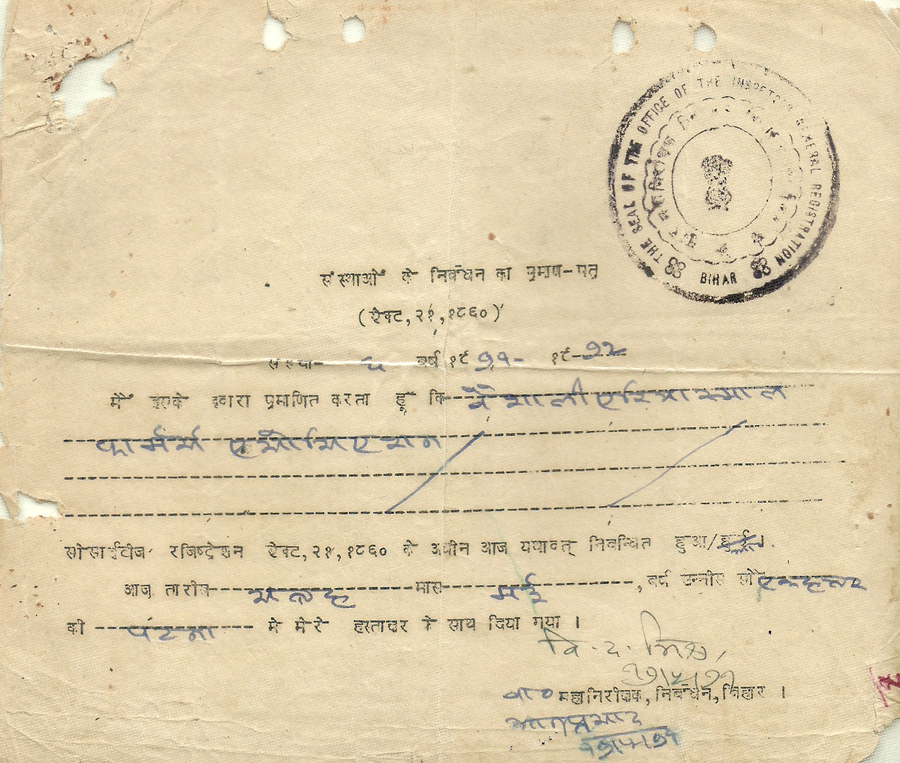 THE SEAL OF THE OFFICE OF THE INSPECTOR GENERAL REGISTRATION
BIHAR
संस्थाओं के निबंधन का प्रमाण-पत्र
(ऐक्ट, २१, १८६०)
संख्या- ६ वर्ष १९७१- १९-७२
मैं इसके द्वारा प्रमाणित करता हूं कि वैशाली एरिया स्माल
फार्मर्स एसोसिएशन
सोसाईटीज रजिष्ट्रेशन ऐक्ट, २१, १८६० के अधीन आज यथावत् निबन्धित हुआ/हुई।
आज तारीख सत्रह मास मई, वर्ष उन्नीस सौ एकहत्तर
को पटना में मेरे हस्ताक्षर के साथ दिया गया ।
वि. द. मिश्र,
१७/५/७१
वा० महानिरीक्षक, निबंधन, बिहार ।
१७/५/७१